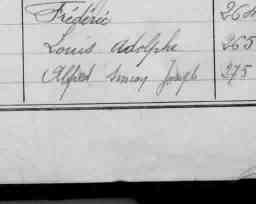 Frédéric 264
Louis Adolphe 265
Alfred Simon Joseph 275